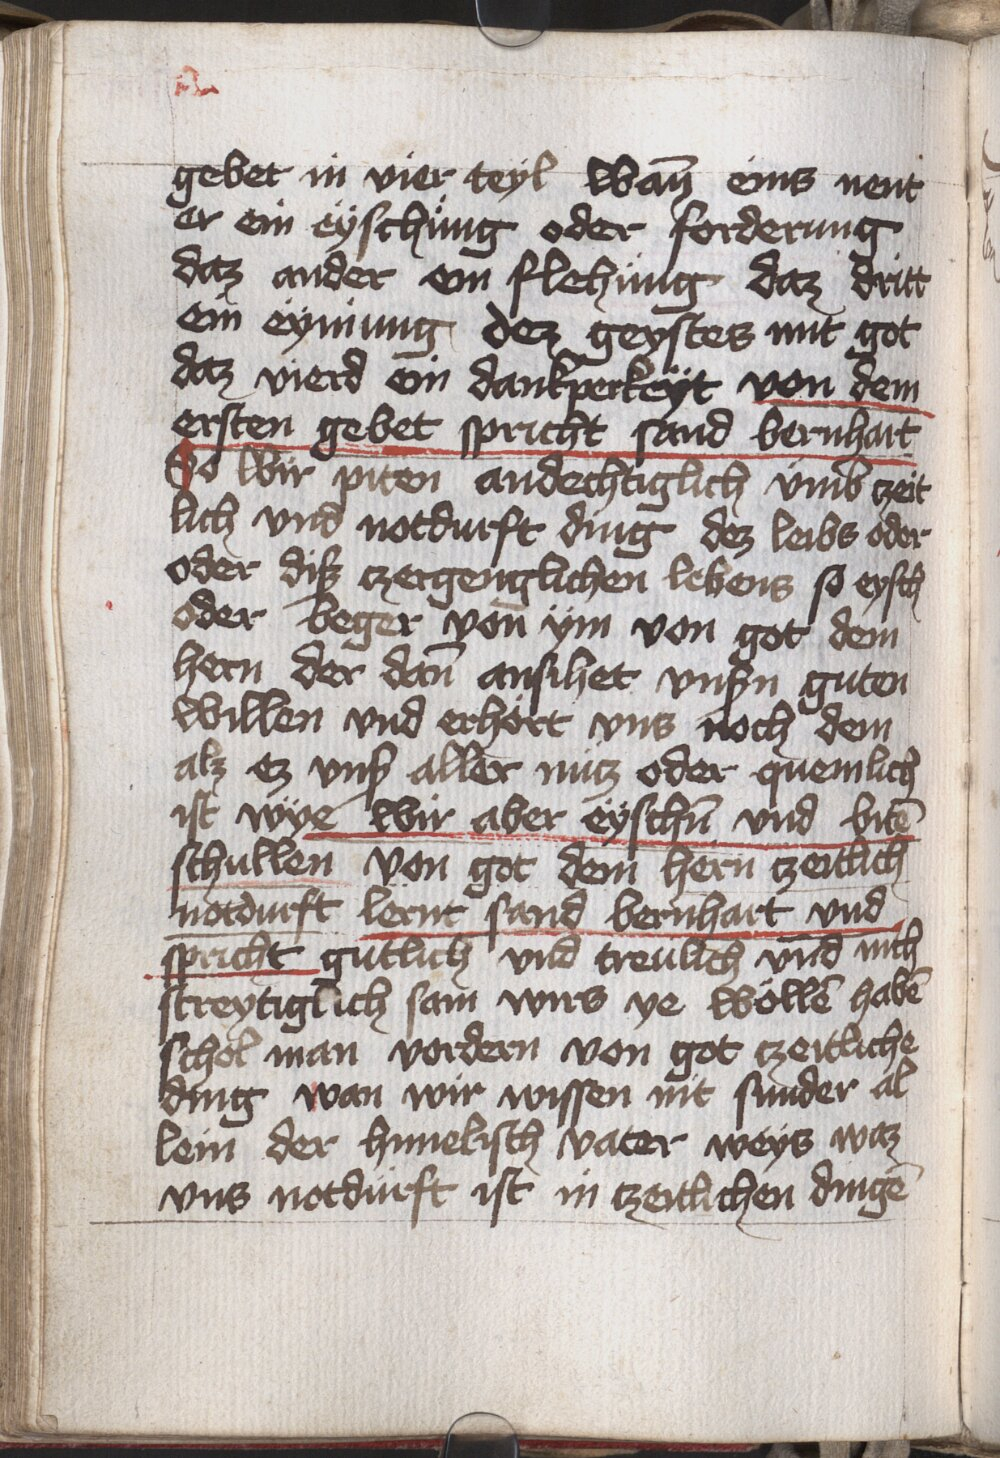 gebet in vier teyl Wan̄ eins nent
er ein eyschung oder forderung
daz ander ein flehung daz dritt
ein eynung dez geystes mit got
daz vierd ein dankperkeyt von dem
ersten gebet spricht sand bernhart
So wir piten andechtiglich vmb czeit
lich vnd notdurft ding dez leibs oder
oder diß czergenglichen lebens so eysch
oder beger von ym von got dem
hern der dan̄ ansihet vnßn guten
willen vnd erhört vns noch dem
alz ez vnß aller nutz oder quemlich
ist wye wir aber eyschn̄ vnd bitē
schullen von got dem hern czeitlich
notdurft lernt sand bernhart vnd
spricht gutlich vnd treulich vnd nich
streytiglich sam wirs ye wöllē habē
schol man vordern von got czeitliche
ding wan wir wissen nit sunder al
lein der himelisch vater weys waz
vns notdurft ist in czeitlichen dingē